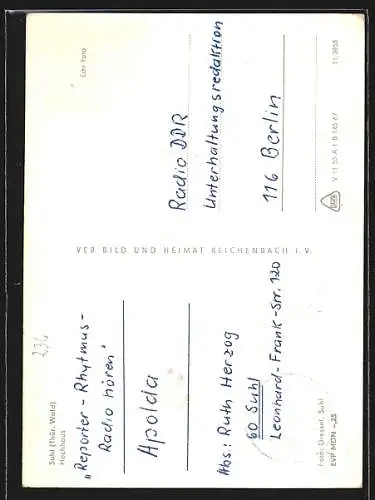 Suhl (Thür. Wald)
Hochhaus
236
„Reporter-Rhytmus-
Radio hören"
Apolda
Abs.: Ruth Herzog
60 Suhl
Leonhard-Frank-Str. 120
Foto: Dressel, Suhl
EVP MDN -,25
VEB BILD UND HEIMAT REICHENBACH I. V.
Echt Foto
Radio DDR
Unterhaltungsredaktion
116 Berlin
V 11 50 A 1 B 145 67